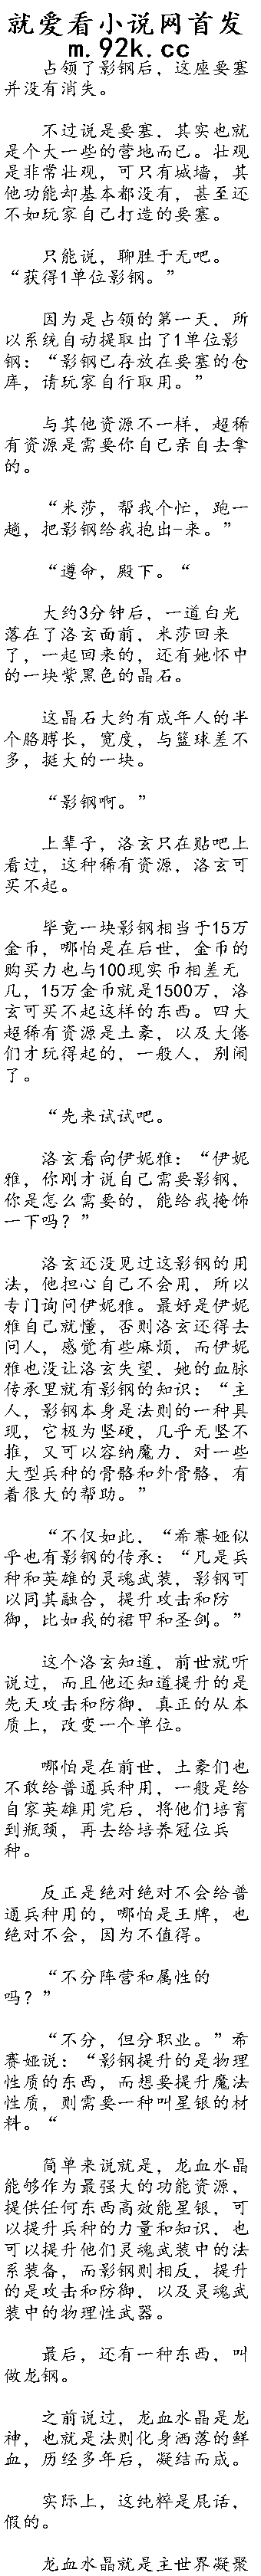 就爱看小说网首发
m.92k.cc
占领了影钢后，这座要塞
并没有消失。
不过说是要塞，其实也就
是个大一些的营地而已。壮观
是非常壮观，可只有城墙，其
他功能却基本都没有，甚至还
不如玩家自己打造的要塞。
只能说，聊胜于无吧。
“获得1单位影钢。”
因为是占领的第一天，所
以系统自动提取出了1单位影
钢：“影钢已存放在要塞的仓
库，请玩家自行取用。”
与其他资源不一样，超稀
有资源是需要你自己亲自去拿
的。
“米莎，帮我个忙，跑一
趟，把影钢给我抱出-来。”
“遵命，殿下。“
大约3分钟后，一道白光
落在了洛玄面前，米莎回来
了，一起回来的，还有她怀中
的一块紫黑色的晶石。
这晶石大约有成年人的半
个胳膊长，宽度，与篮球差不
多，挺大的一块。
“影钢啊。”
上辈子，洛玄只在贴吧上
看过，这种稀有资源，洛玄可
买不起。
毕竟一块影钢相当于15万
金币，哪怕是在后世，金币的
购买力也与100现实币相差无
几，15万金币就是1500万，洛
玄可买不起这样的东西。四大
超稀有资源是土豪，以及大倦
们才玩得起的，一般人，别闹
了。
“先来试试吧。
洛玄看向伊妮雅：“伊妮
雅，你刚才说自己需要影钢，
你是怎么需要的，能给我掩饰
一下吗？”
洛玄还没见过这影钢的用
法，他担心自己不会用，所以
专门询问伊妮雅。最好是伊妮
雅自己就懂，否则洛玄还得去
问人，感觉有些麻烦，而伊妮
雅也没让洛玄失望，她的血脉
传承里就有影钢的知识：“主
人，影钢本身是法则的一种具
现，它极为坚硬，几乎无坚不
推，又可以容纳魔力，对一些
大型兵种的骨骼和外骨骼，有
着很大的帮助。”
“不仅如此，“希赛娅似
乎也有影钢的传承：“凡是兵
种和英雄的灵魂武装，影钢可
以同其融合，提升攻击和防
御，比如我的裙甲和圣剑。”
这个洛玄知道，前世就听
说过，而且他还知道提升的是
先天攻击和防御，真正的从本
质上，改变一个单位。
哪怕是在前世，土豪们也
不敢给普通兵种用，一般是给
自家英雄用完后，将他们培育
到瓶颈，再去给培养冠位兵
种。
反正是绝对绝对不会给普
通兵种用的，哪怕是王牌，也
绝对不会，因为不值得。
“不分阵营和属性的
吗？”
“不分，但分职业。”希
赛娅说：“影钢提升的是物理
性质的东西，而想要提升魔法
性质，则需要一种叫星银的材
料。“
简单来说就是，龙血水晶
能够作为最强大的功能资源，
提供任何东西高效能星银，可
以提升兵种的力量和知识，也
可以提升他们灵魂武装中的法
系装备，而影钢则相反，提升
的是攻击和防御，以及灵魂武
装中的物理性武器。
最后，还有一种东西，叫
做龙钢。
之前说过，龙血水晶是龙
神，也就是法则化身洒落的鲜
血，历经多年后，凝结而成。
实际上，这纯粹是屁话，
假的。
龙血水晶就是主世界凝聚